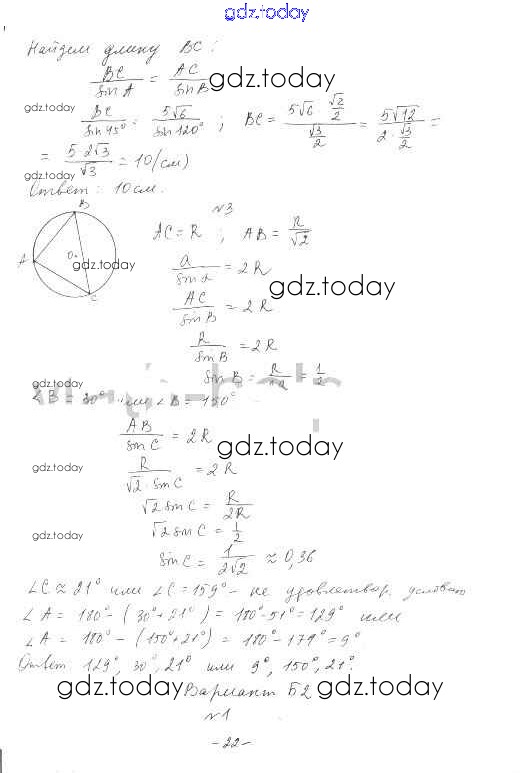 gdz.today
Найдем длину BC:
BC/sin A = AC/sin B
gdz.today
gdz.today
BC/sin 45° = 5√6/sin 120° ; BC = (5√6 · √2/2)/(√3/2) = 5√12/(2 · √3/2) =
= 5·2√3/√3 = 10 (см)
gdz.today
Ответ: 10 см.
№3
B
A
O
C
AC = R ; AB = R/√2
gdz.today
a/sin α = 2R
gdz.today
AC/sin B = 2R
R/sin B = 2R
sin B = R/2R = 1/2
gdz.today
∠B = 30° или ∠B = 150°
AB/sin C = 2R
gdz.today
R/(√2 · sin C) = 2R
gdz.today
√2 sin C = R/2R
√2 sin C = 1/2
gdz.today
sin C = 1/(2√2) ≈ 0,36
∠C ≈ 21° или ∠C = 159° - не удовлетвор. условию
∠A = 180° - (30° + 21°) = 180° - 51° = 129° или
∠A = 180° - (150° + 21°) = 180° - 179° = 9°
Ответ 129°, 30°, 21° или 9°, 150°, 21°.
gdz.today Вариант Б2 gdz.today
№1
- 22 -